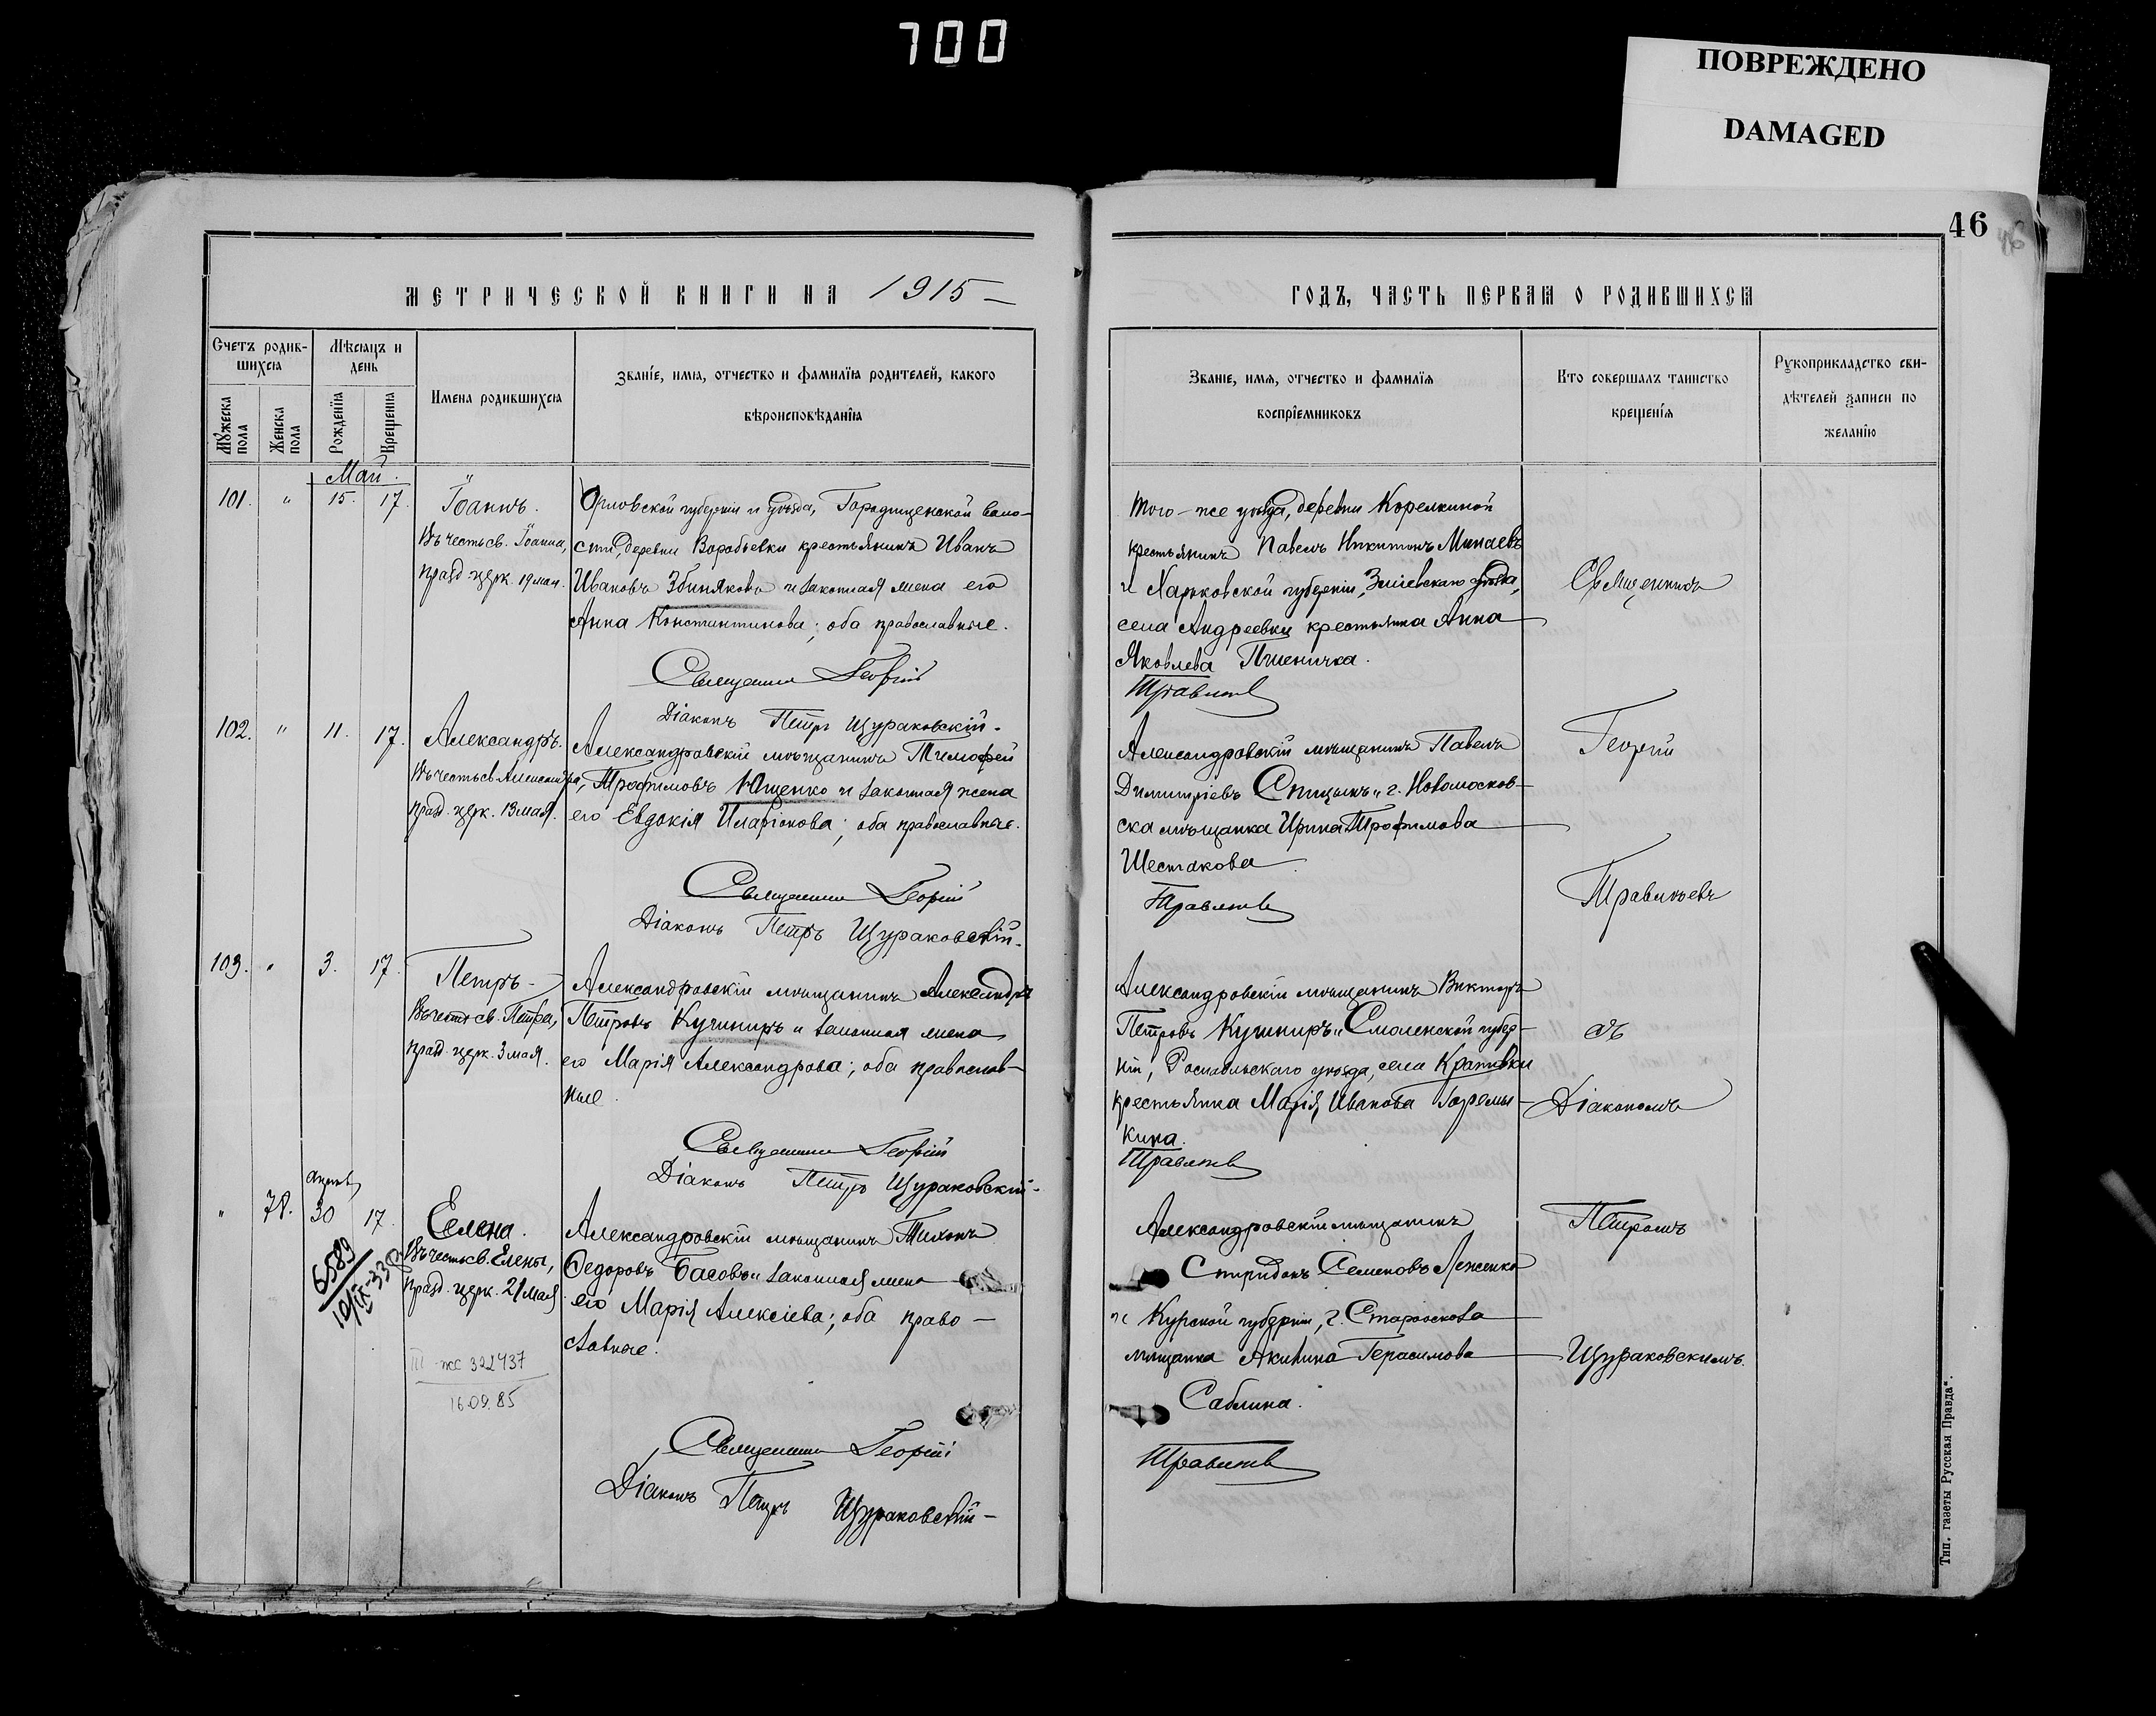 700
ПОВРЕЖДЕНО
DAMAGED
46
46
МЕТРИЧЕСКОЙ КНИГИ НА 1915
Счетъ родив-
шихся
Мѣсяцъ и
день
Мужеска
пола
Женска
пола
Рожденія
Крещенія
Имена родившихся
Званіе, имя, отчество и фамилія родителей, какого
вѣроисповѣданія
Май.
101. " 15. 17.
Іоаннъ.
Въ честь св. Іоанна,
празд. церк. 19 мая.
Орловской губерніи и уѣзда, Городищенской воло-
сти, деревни Воробьевки крестьянинъ Иванъ
Ивановъ Збиняковъ и законная жена его
Анна Константинова; оба православные.
Священникъ Георгій
Діаконъ Петръ Щураковскій.
102. " 11. 17.
Александръ.
Въ честь св. Александра,
празд. церк. 13 мая.
Александровскій мѣщанинъ Тимофей
Трофимовъ Ющенко и законная жена
его Евдокія Иларіонова; оба православные.
Священникъ Георгій
Діаконъ Петръ Щураковскій.
103. " 3. 17.
Петръ
Въ честь св. Петра,
празд. церк. 3 мая.
Александровскій мѣщанинъ Александръ
Петровъ Кушниръ и законная жена
его Марія Александрова; оба православ-
ные.
Священникъ Георгій
Діаконъ Петръ Щураковскій
апрель
" 78. 30 17.
Елена.
Въ честь св. Елены,
празд. церк. 21 мая
6589
10/IX-33
III-жс 322437
16.09.85
Александровскій мѣщанинъ Тихонъ
Ѳедоровъ Басовъ и законная жена
его Марія Алексіева; оба право-
славные.
Священникъ Георгій
Діаконъ Петръ Щураковскій
ГОДЪ, ЧАСТЬ ПЕРВАЯ О РОДИВШИХСЯ
Званіе, имя, отчество и фамилія
воспріемниковъ
Кто совершалъ таинство
крещенія
Рукоприкладство сви-
дѣтелей записи по
желанію
Того-же уѣзда, деревни Корелкиной
крестьянинъ Павелъ Никитинъ Минаевъ
и Харьковской губерніи, Зміевскаго уѣзда,
села Андреевки крестьянка Анна
Яковлева Пшеничка.
Травлевъ
Александровскій мѣщанинъ Павелъ
Димитріевъ Спицынъ и г. Новомосков-
ска мѣщанка Ирина Трофимова
Шестакова.
Александровскій мѣщанинъ Викторъ
Петровъ Кушниръ и Смоленской губер-
ніи, Рославльскаго уѣзда, села Крапивки
крестьянка Марія Иванова Горемы-
кина.
Александровскій мѣщанинъ
Спиридонъ Семеновъ Леженко
и Курской губерніи, г. Староскова
мѣщанка Акилина Герасимова
Саблина.
Священникъ
Георгій
съ
Діакономъ
Петромъ
Щураковскимъ.
Тип. газеты Русская Правда".